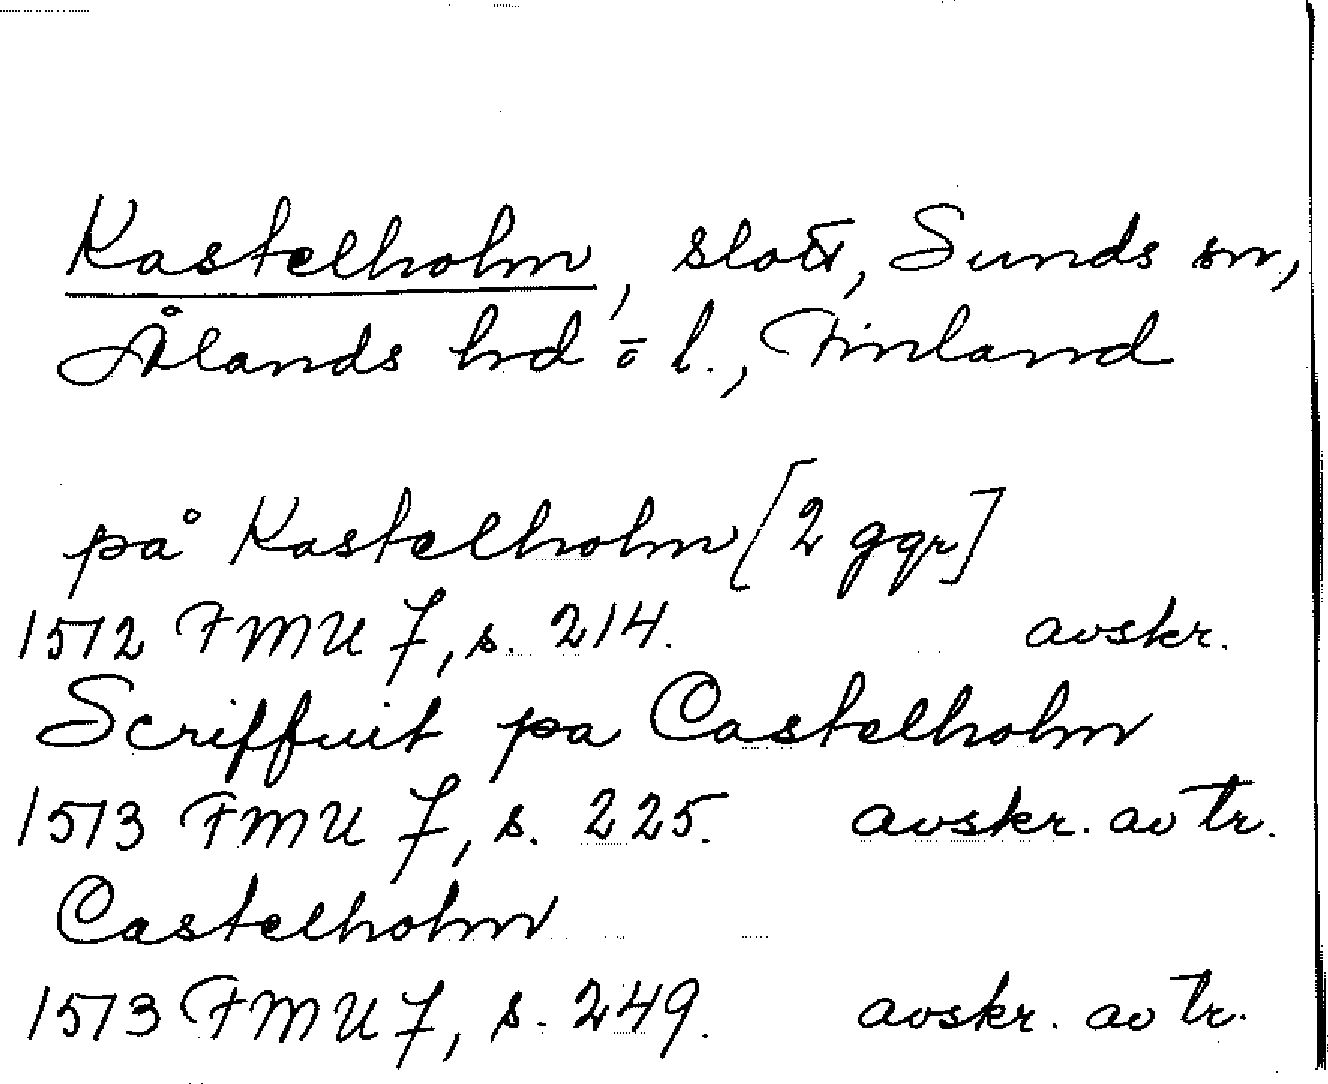 Kastelholm, slott, Sunds sn,
Ålands hd o l., Finland
på Kastelholm [2 ggr]
1512 FMU 7, s. 214. avskr.
Scriffuit pa Castelholm
1513 FMU 7, s. 225. avskr. av tr.
Castelholm
1513 FMU 7, s. 249. avskr. av tr.